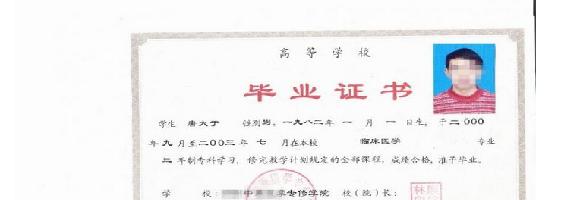 高等学校
毕业证书
学生 唐大于 性别男,一九八二年 一 月 1 日生,于二000
年九月至二00三年 七 月在本校 临床医学 专业
三年制专科学习,修完教学计划规定的全部课程,成绩合格,准予毕业。
学 校: 中 学专修学院 校(院)长: